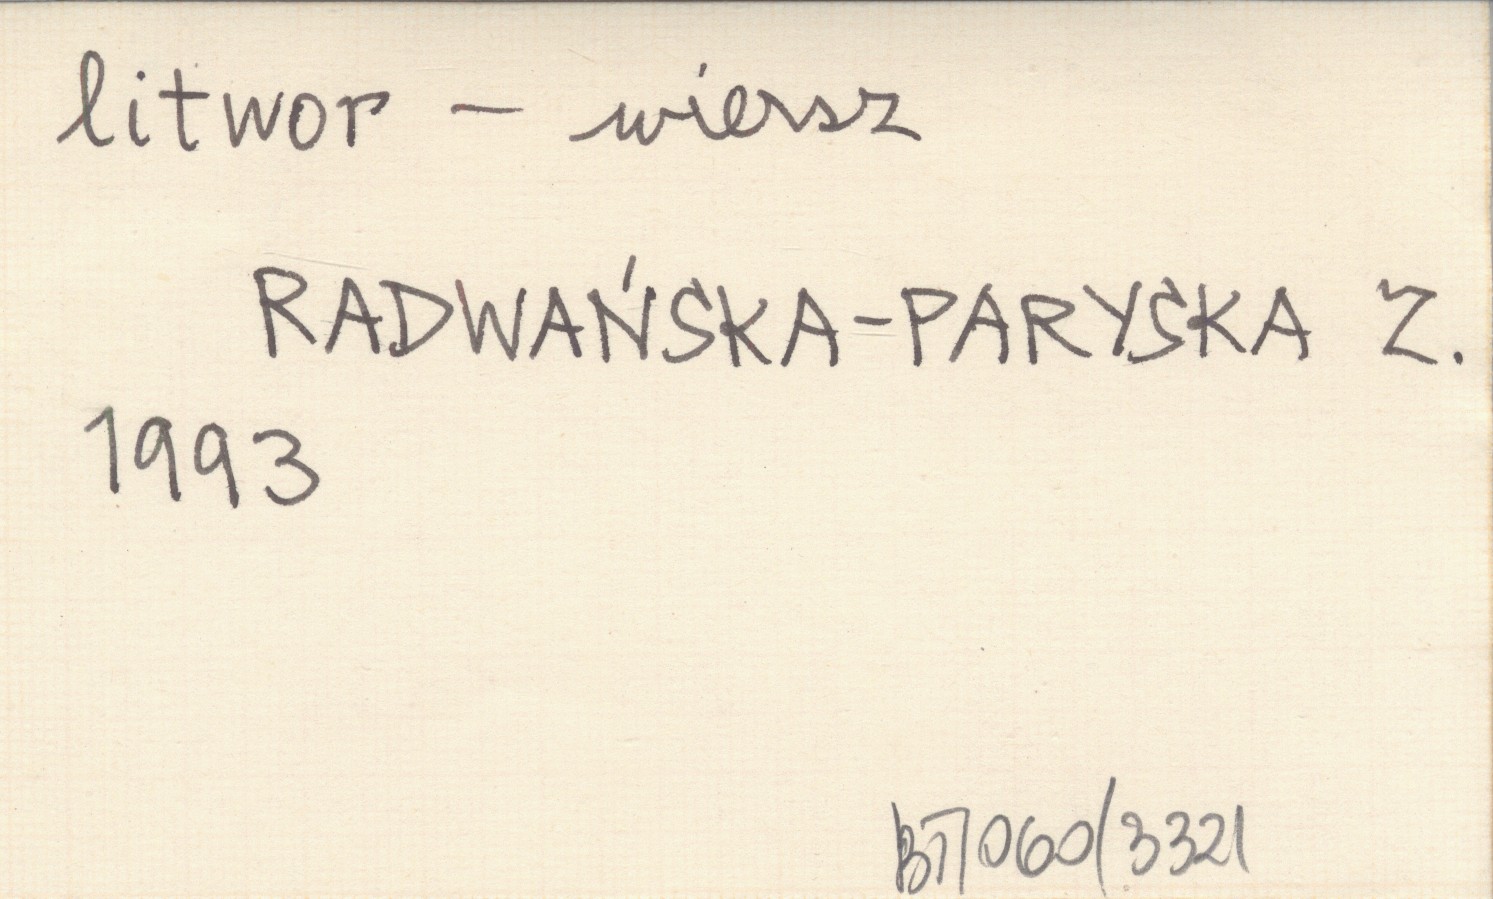 litwor – wiersz
RADWAŃSKA-PARYSKA Z.
1993
BT/060/3321